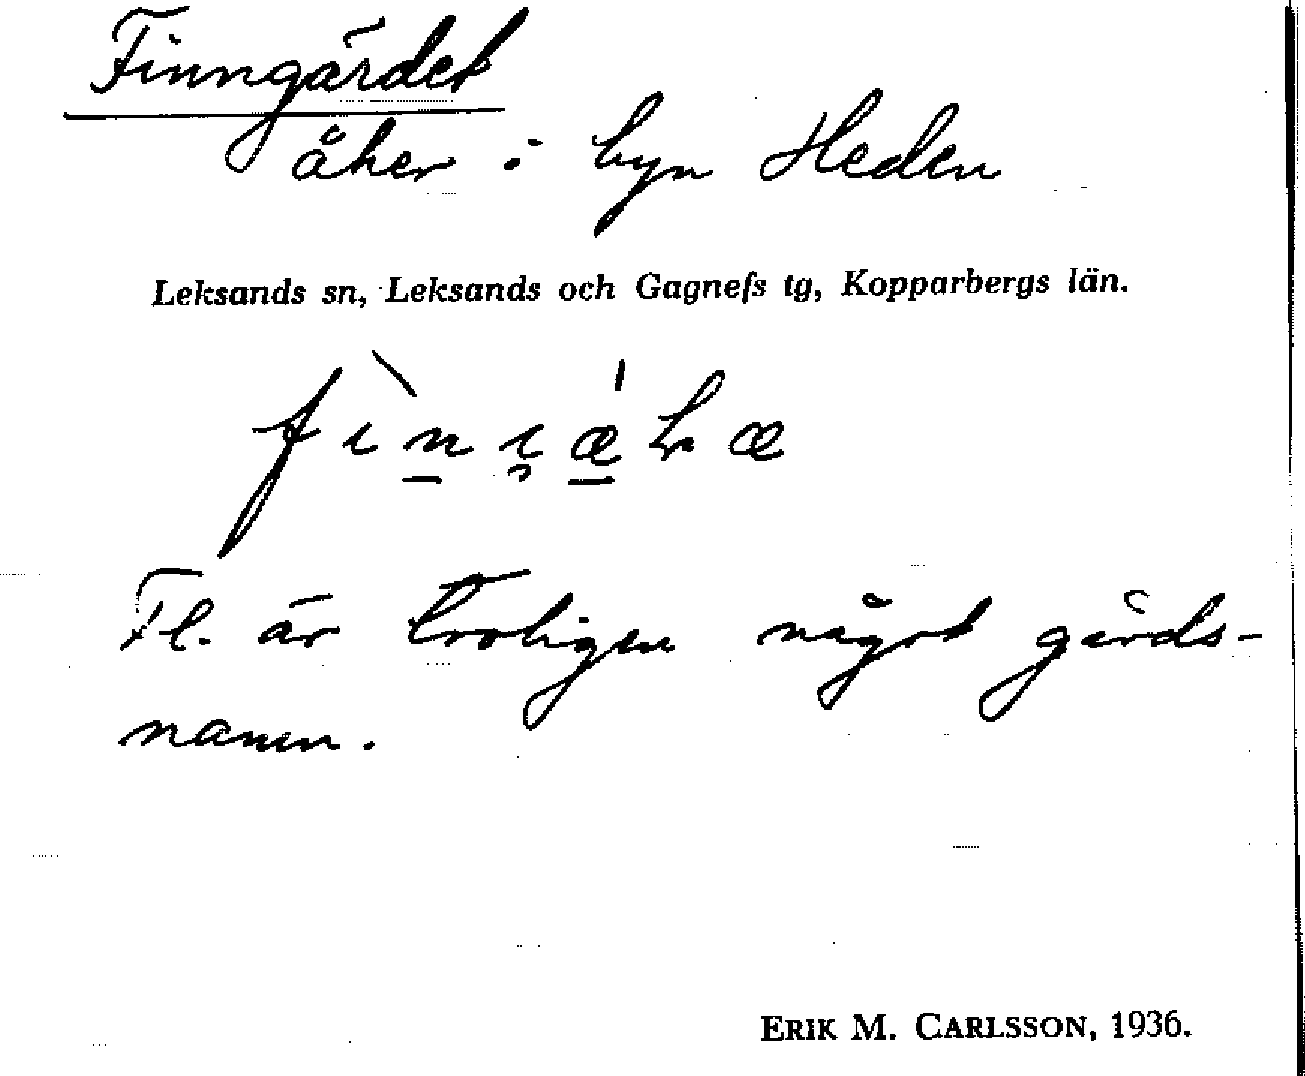 Finngärdet
åker i byn Heden
Leksands sn, Leksands och Gagnefs tg, Kopparbergs län.
Fl. är troligen något gårds-
namn.
ERIK M. CARLSSON, 1936.